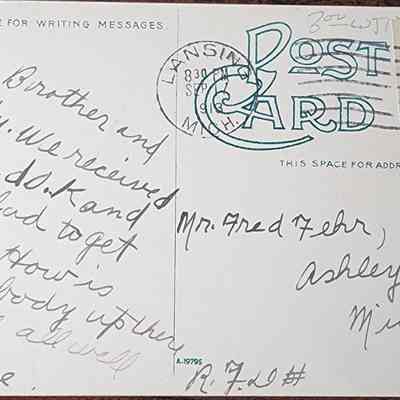 E FOR WRITING MESSAGES.
Brother and
We received
O.K and
to get
How is
body up there
all well
POST
CARD
LANSING
830 PM
SEP
MICH.
THIS SPACE FOR ADDR
Mr. Fred Fehr,
Ashley
Mi
A-19795
R. F. D #